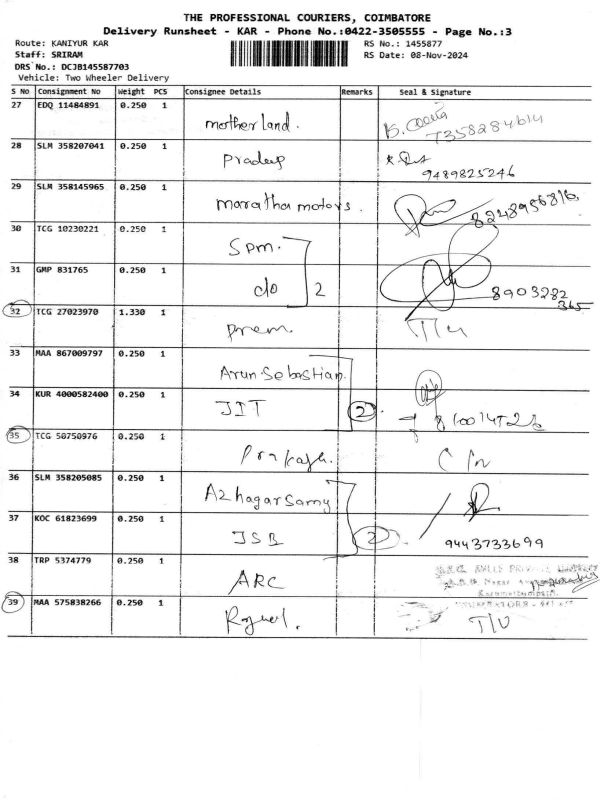 THE PROFESSIONAL COURIERS, COIMBATORE
Delivery Runsheet - KAR - Phone No.:0422-3505555 - Page No.:3
Route: KANIYUR KAR RS No.: 1455877
Staff: SRIRAM RS Date: 08-Nov-2024
DRS No.: DCJB145587703
Vehicle: Two Wheeler Delivery
S No Consignment No Weight PCS Consignee Details Remarks Seal & Signature
27 EDQ 11484891 0.250 1
motherland. 7358284614
28 SLM 358207041 0.250 1
Pradeep 9489825246
29 SLM 358145965 0.250 1
maratha motors. 8248956816
30 TCG 10230221 0.250 1
Spm.
31 GMP 831765 0.250 1
do 2 8903282
365
32 TCG 27023970 1.330 1
prem.
33 MAA 867009797 0.250 1
Arun Sebastian.
34 KUR 4000582400 0.250 1
JIT 2
35 TCG 50750976 0.250 1
Prakash.
36 SLM 358205085 0.250 1
Azhagarsamy
37 KOC 61823699 0.250 1
JSB 2 9443733699
38 TRP 5374779 0.250 1
ARC
39 MAA 575838266 0.250 1